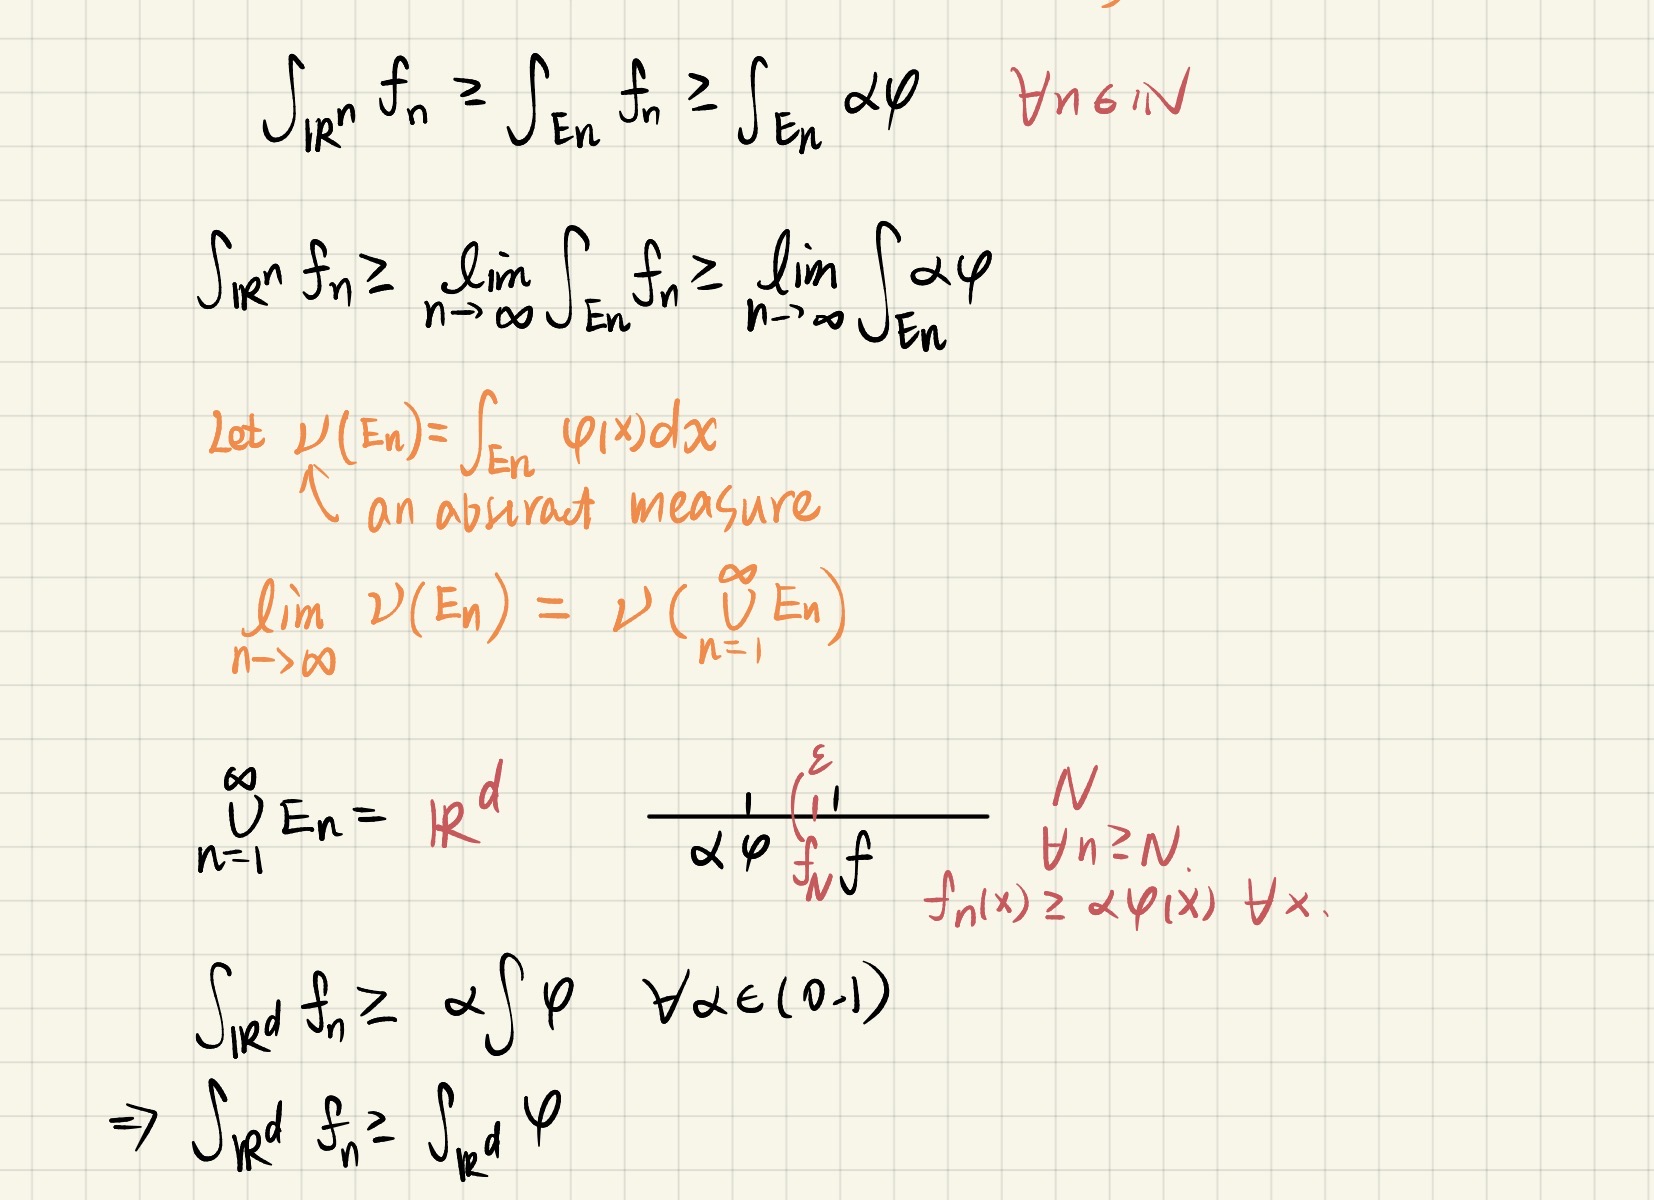 ∫_{ℝⁿ} fₙ ≥ ∫_{Eₙ} fₙ ≥ ∫_{Eₙ} αφ ∀n∈ℕ
∫_{ℝⁿ} fₙ ≥ lim_{n→∞} ∫_{Eₙ} fₙ ≥ lim_{n→∞} ∫_{Eₙ} αφ
Let ν(Eₙ) = ∫_{Eₙ} φ(x)dx
an absract measure
lim_{n→∞} ν(Eₙ) = ν(∪_{n=1}^{∞} Eₙ)
∪_{n=1}^{∞} Eₙ = ℝ^d
ε
αφ f_N f
N
∀n≥N.
fₙ(x) ≥ αφ(x) ∀x.
∫_{ℝ^d} fₙ ≥ α∫φ ∀α∈(0.1)
⇒ ∫_{ℝ^d} fₙ ≥ ∫_{ℝ^d} φ